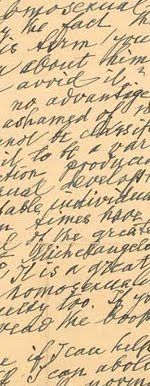 omosexual
the fact th
is term you
u about him
avoid it?
no advantage
ashamed of
not be classifi
it to be a var
ction produced
ual developm
able individual
n times have
of the greate
Michelangelo
It is a great
homosexual
uelty too. If you
read the book
if I can help
I can abol